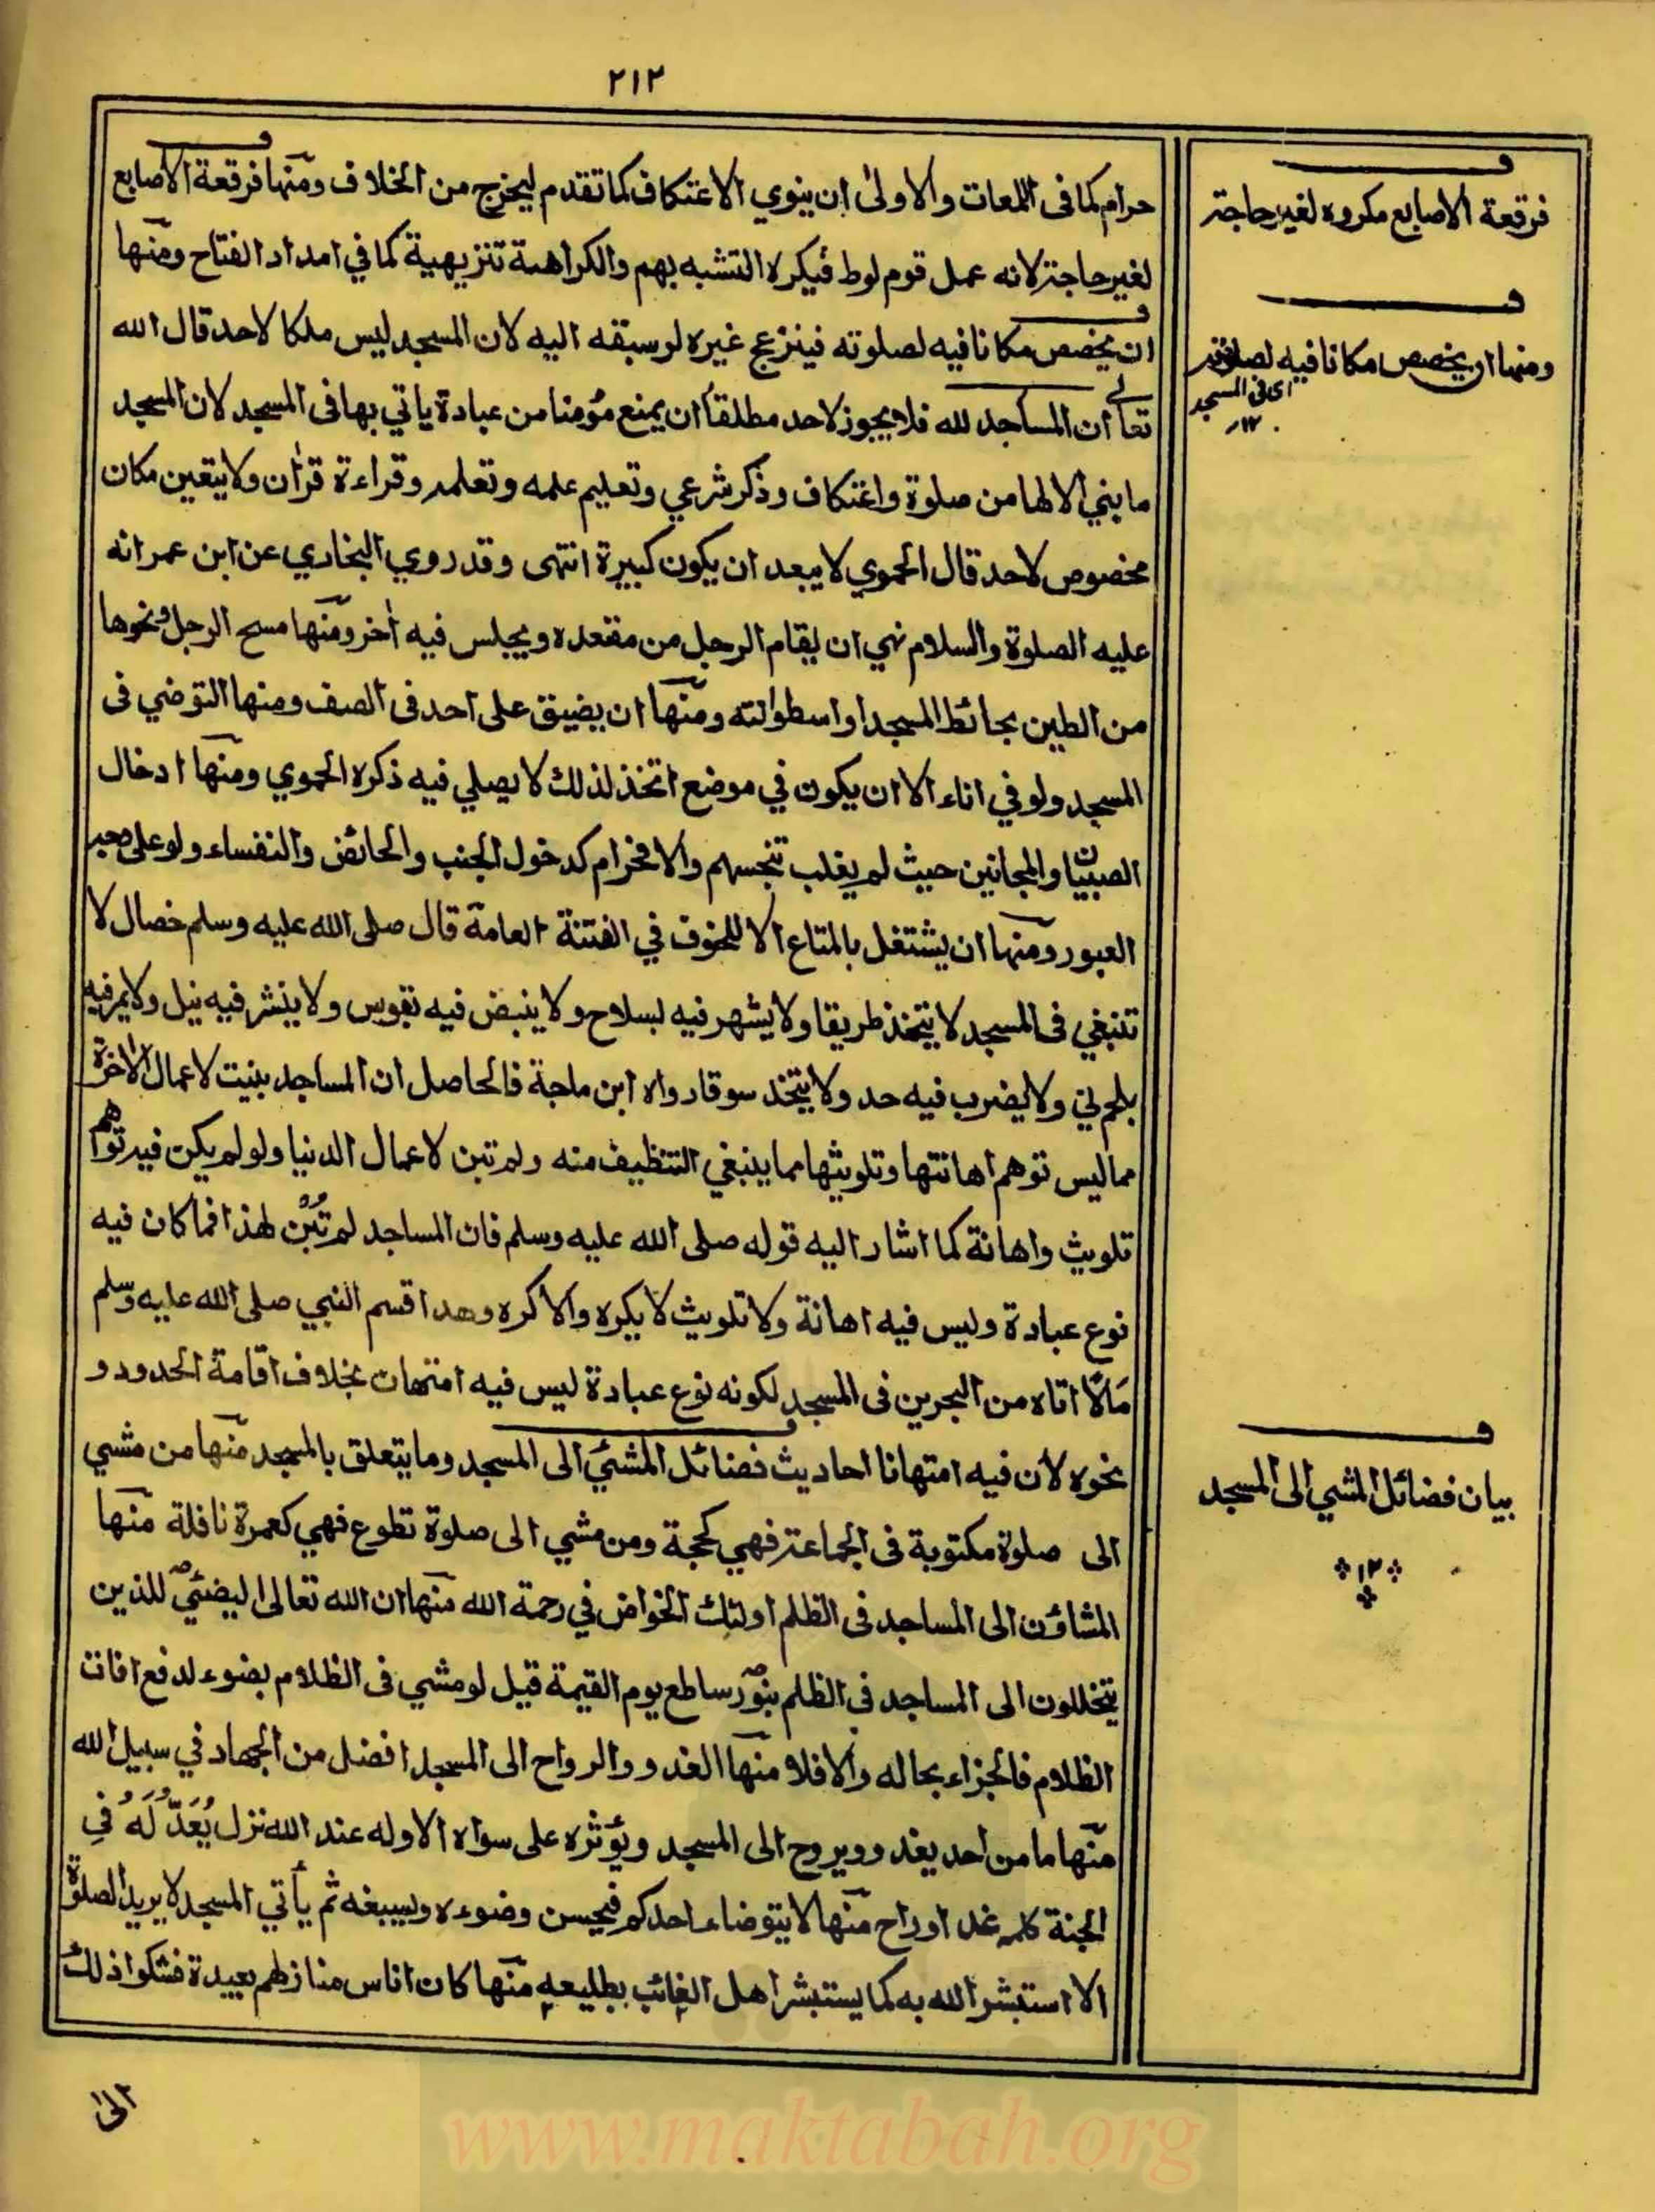 ٢١٢
حرام كما فى اللمعات والاولىٰ ان ينوي الاعتكاف كما تقدم ليخرج من الخلاف ومنها فرقعة الاصابع
لغير حاجة لانه عمل قوم لوط فيكره التشبه بهم والكراهة تنزيهية كما في امداد الفتاح ومنها
ان يخصص مكانا فيه لصلوته فينزعج غيره لو سبقه اليه لان المسجد ليس ملكا لاحد قال الله
تعالى ان المساجد لله فلا يجوز لاحد مطلقا ان يمنع مؤمنا من عبادة ياتي بها فى المسجد لان المسجد
ما بني الا لها من صلوة واعتكاف وذكر شرعي وتعليم علمه وتعلمه وقراءة قرآن ولا يتعين مكان
مخصوص لاحد قال الحموي لا يبعد ان يكون كبيرة انتهى وقد روي البخاري عن ابن عمر انه
عليه الصلوة والسلام نهي ان يقام الرجل من مقعده ويجلس فيه اٰخر ومنها مسح الرجل ونحوها
من الطين بحائط المسجد او اسطوانته ومنها ان يضيق على احد فى الصف ومنها التوضي فى
المسجد ولو في اناء الا ان يكون في موضع اتخذ لذلك لا يصلي فيه ذكره الحموي ومنها ادخال
الصبيان والمجانين حيث لم يغلب تنجسهم والا فحرام كدخول الجنب والحائض والنفساء ولو على وجه
العبور ومنها ان يشتغل بالمتاع الا للخوف في الفتنة العامة قال صلى الله عليه وسلم خصال لا
تنبغي فى المسجد لا يتخذ طريقا ولا يشهر فيه لسلاح ولا ينبض فيه بقوس ولا ينشر فيه نبل ولا يمر فيه
بلحم ني ولا يضرب فيه حد ولا يتخذ سوقا رواه ابن ماجة فالحاصل ان المساجد بنيت لاعمال الاخرة
مما ليس توهم اهانتها وتلويثها مما ينبغي التنظيف منه ولم تبن لاعمال الدنيا ولو لم يكن فيه توهم
تلويث واهانة كما اشار اليه قوله صلى الله عليه وسلم فان المساجد لم تُبْنَ لهذا فما كان فيه
نوع عبادة وليس فيه اهانة ولا تلويث لا يكره والا كره وهدا قسم النبي صلى الله عليه وسلم
مَالًا اتاه من البحرين فى المسجد لكونه نوع عبادة ليس فيه امتهان بخلاف اقامة الحدود و
نحوه لان فيه امتهانا احاديث فضائل المشئي الى المسجد وما يتعلق بالمسجد منها من مشي
الى صلوة مكتوبة فى الجماعة فهي كحجة ومن مشي الى صلوة تطوع فهي كعمرة نافلة منها
المشاؤن الى المساجد فى الظلم اولئك الخواض في رحمة الله منها ان الله تعالى ليضئي للذين
يتخللون الى المساجد فى الظلم بنور ساطع يوم القيمة قيل لو مشي فى الظلام بضوء لدفع افات
الظلام فالجزاء بحاله والا فلا منها الغدو والرواح الى المسجد افضل من الجهاد في سبيل الله
منها ما من احد يغدو ويروح الى المسجد ويؤثره على سواه الا وله عند الله نزل يُعَدُّ لَهُ فِي
الجنة كلمه غدا وراح منها لا يتوضاء احدكم فيحسن وضوءه ويسبغه ثم يأتي المسجد لا يريد الصلوة
الا استبشر الله به كما يستبشر اهل الغائب بطليعه منها كان اناس منازلهم بعيدة فشكوا ذلك
الى
فرقعة الاصابع مكروه لغير حاجة
ومنها ان يخصص مكانا فيه لصلوته
اى فى المسجد
١٢
بيان فضائل المشي الى المسجد
١٢
www.maktabah.org